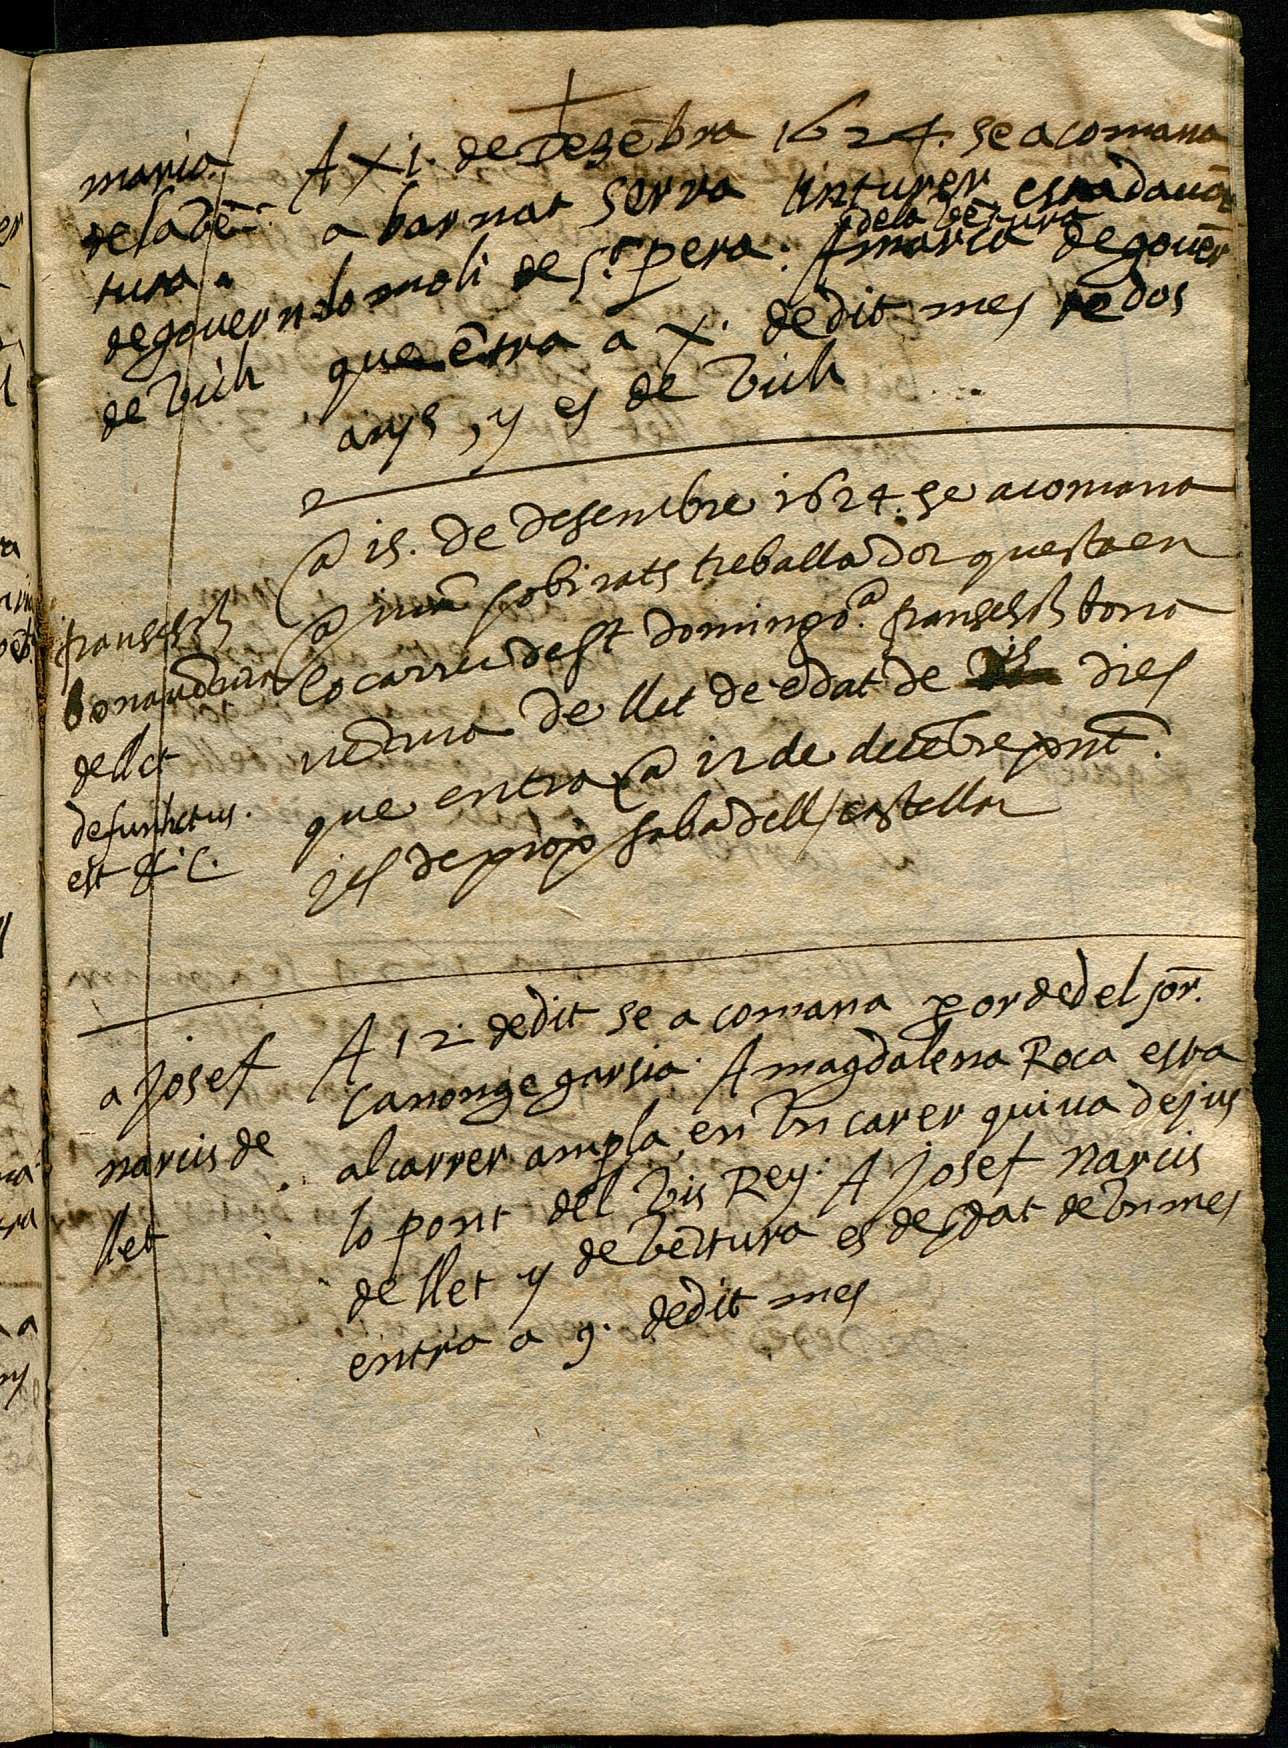 maria
de la bē
tura
de govern
de Vich
A XI. de Dezēbra 1624. se a comana
a barnat serra tinturer esta davāt
lo moli de St. pera. A maria de govēr
de la bētura
que ētra a X. de dit mes te dos
anys, y es de Vich
fransesch
bonaventura
de llet
defunctus
est
a 15. de desembre 1624. se acomana
a juā sobirats treballador questa en
lo carru de St domingo. fransesch bona
ventura de llet de edat de 15 dies
que entra a 12 de decēbre pnt.
y es de prop sabadell / castellar
a Josef
narcis de
llet
A 12. de dit se a comana per orde del sōr.
Canonge garsia. A magdalena Roca esta
al carrer ampla, en Un carer qui va dejus
lo pont del Vis Rey. A Josef Narcis
de llet y de bētura es de edat de Un mes
entra a 9. de dit mes